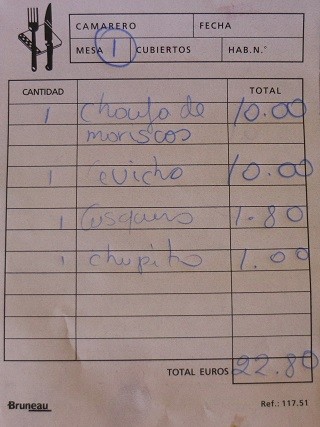 CAMARERO FECHA
MESA 1 CUBIERTOS HAB.N.°
CANTIDAD TOTAL
1 Chaufa de 10.00
mariscos
1 Ceviche 10.00
1 Cusqueña 1.80
1 chupito 1.00
TOTAL EUROS 22.80
Bruneau Ref.: 117.51